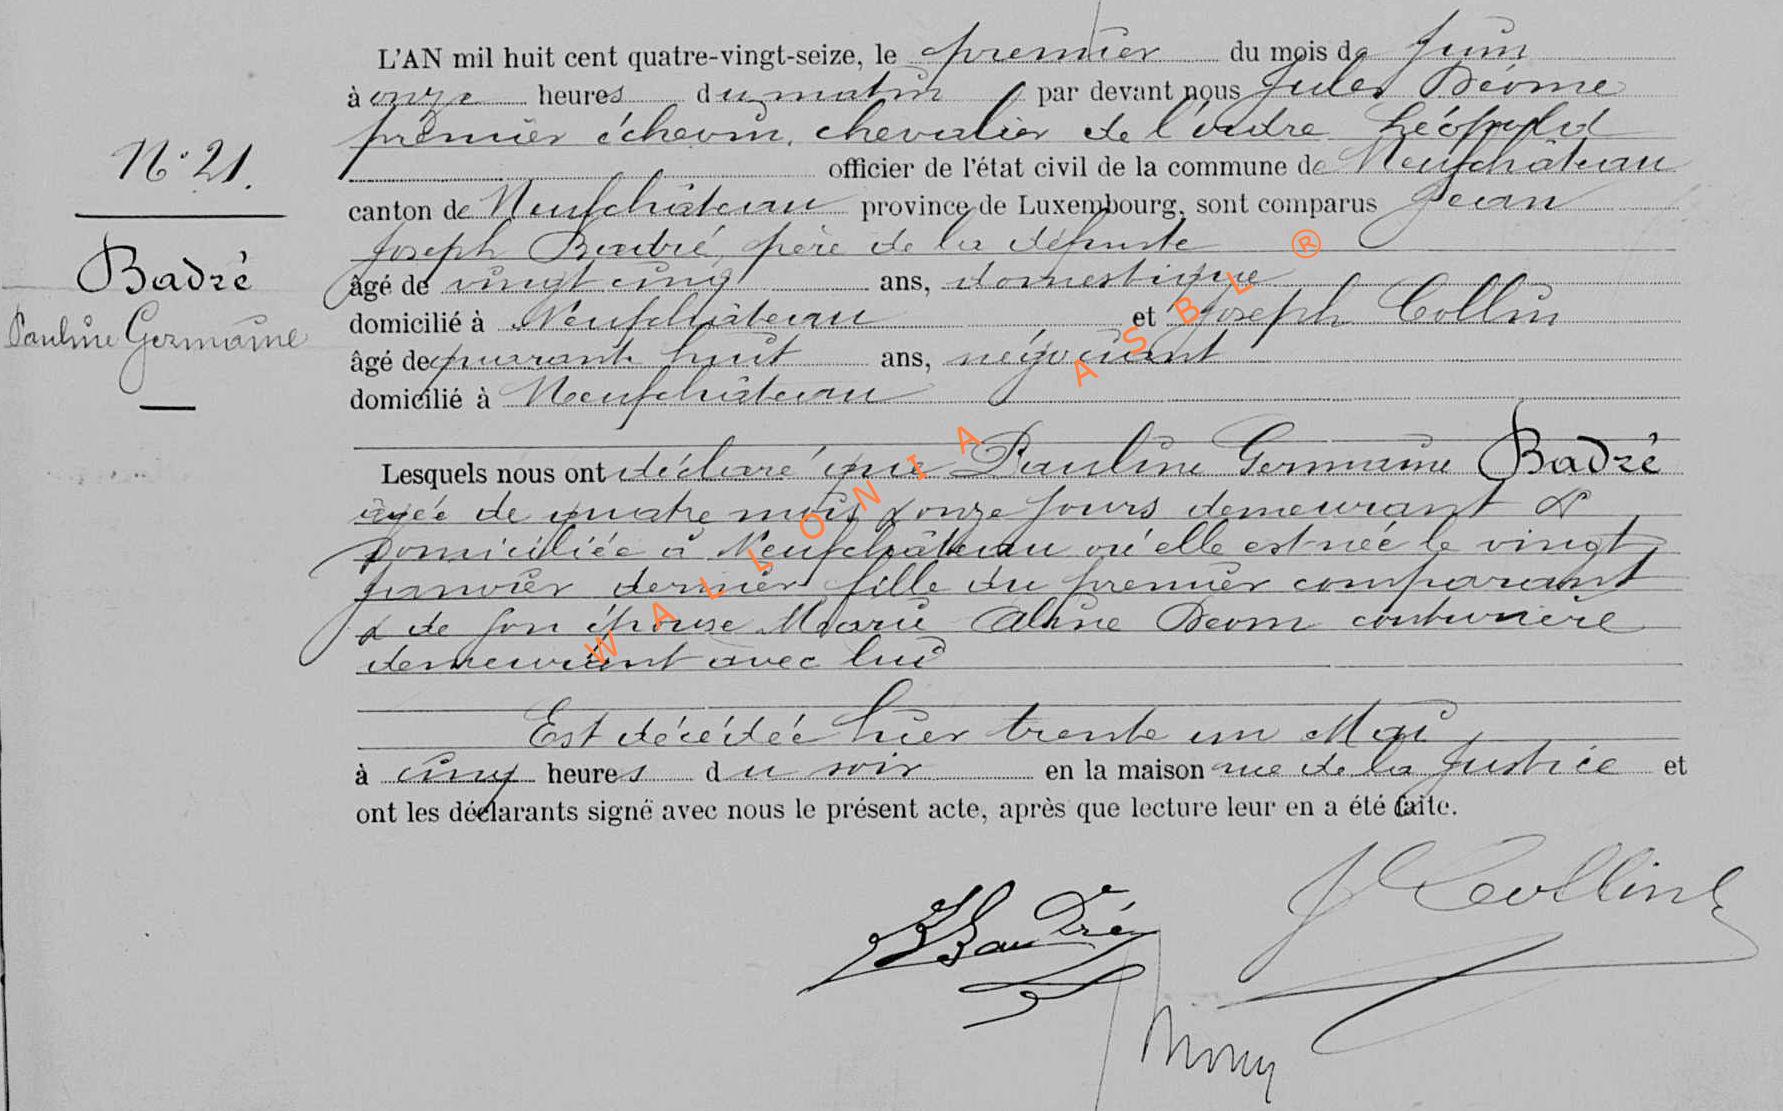 L'AN mil huit cent quatre-vingt-seize, le premier du mois de Juin
à onze heures du matin par devant nous Jules Déome
premier échevin, chevalier de l'ordre Léopold
N° 21.
officier de l'état civil de la commune de Neufchâteau
canton de Neufchâteau province de Luxembourg, sont comparus Jean
Joseph Baudré, père de la défunte
Badré
âgé de vingt cinq ans, domestique
Pauline Germaine
domicilié à Neufchâteau et Joseph Collin
âgé de quarante huit ans, négociant
domicilié à Neufchâteau
Lesquels nous ont déclaré que Pauline Germaine Badré
âgée de quatre mois & onze jours demeurant &
domiciliée à Neufchâteau où elle est née le vingt
janvier dernier fille du premier comparant
& de son épouse Marie Aline Deom couturière
demeurant avec lui
Est décédée hier trente un Mai
à cinq heures du soir en la maison rue de la Justice et
ont les déclarants signé avec nous le présent acte, après que lecture leur en a été faite.
J Collin
JJ Baudré
WALLONIA ASBL ®